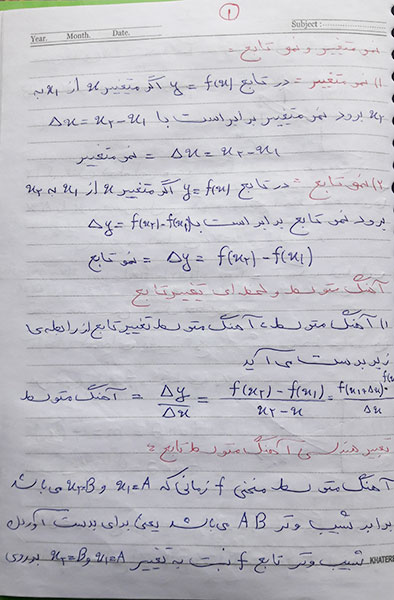 ۱
Year. Month. Date. Subject :
نمو متغیر و نمو تابع =
۱) نمو متغیر = در تابع y = f(x) اگر متغییر x از x₁ به
x₂ برود نمو متغیر برابر است با Δx = x₂ - x₁
نمو متغیر = Δx = x₂ - x₁
۲) نمو تابع = در تابع y = f(x) اگر متغییر x از x₁ به x₂
برود نمو تابع برابر است با Δy = f(x₂) - f(x₁)
نمو تابع = Δy = f(x₂) - f(x₁)
آهنگ متوسط و لحظه ای تغییر تابع
۱) آهنگ متوسط = آهنگ متوسط تغییر تابع از رابطه ی
زیر بدست می آید
آهنگ متوسط = Δy/Δx = f(x₂) - f(x₁)/x₂ - x = f(x₁+Δx) - f(x/Δx
تعبیر هندسی آهنگ متوسط تابع =
آهنگ متوسط منحنی f زمانی که x₁=A و x₂=B می باشد
برابر شیب وتر AB می باشد یعنی برای بدست آوردن
شیب وتر تابع f نبت به تغییر x₁=A و x₂=B بر روی
KHATERE